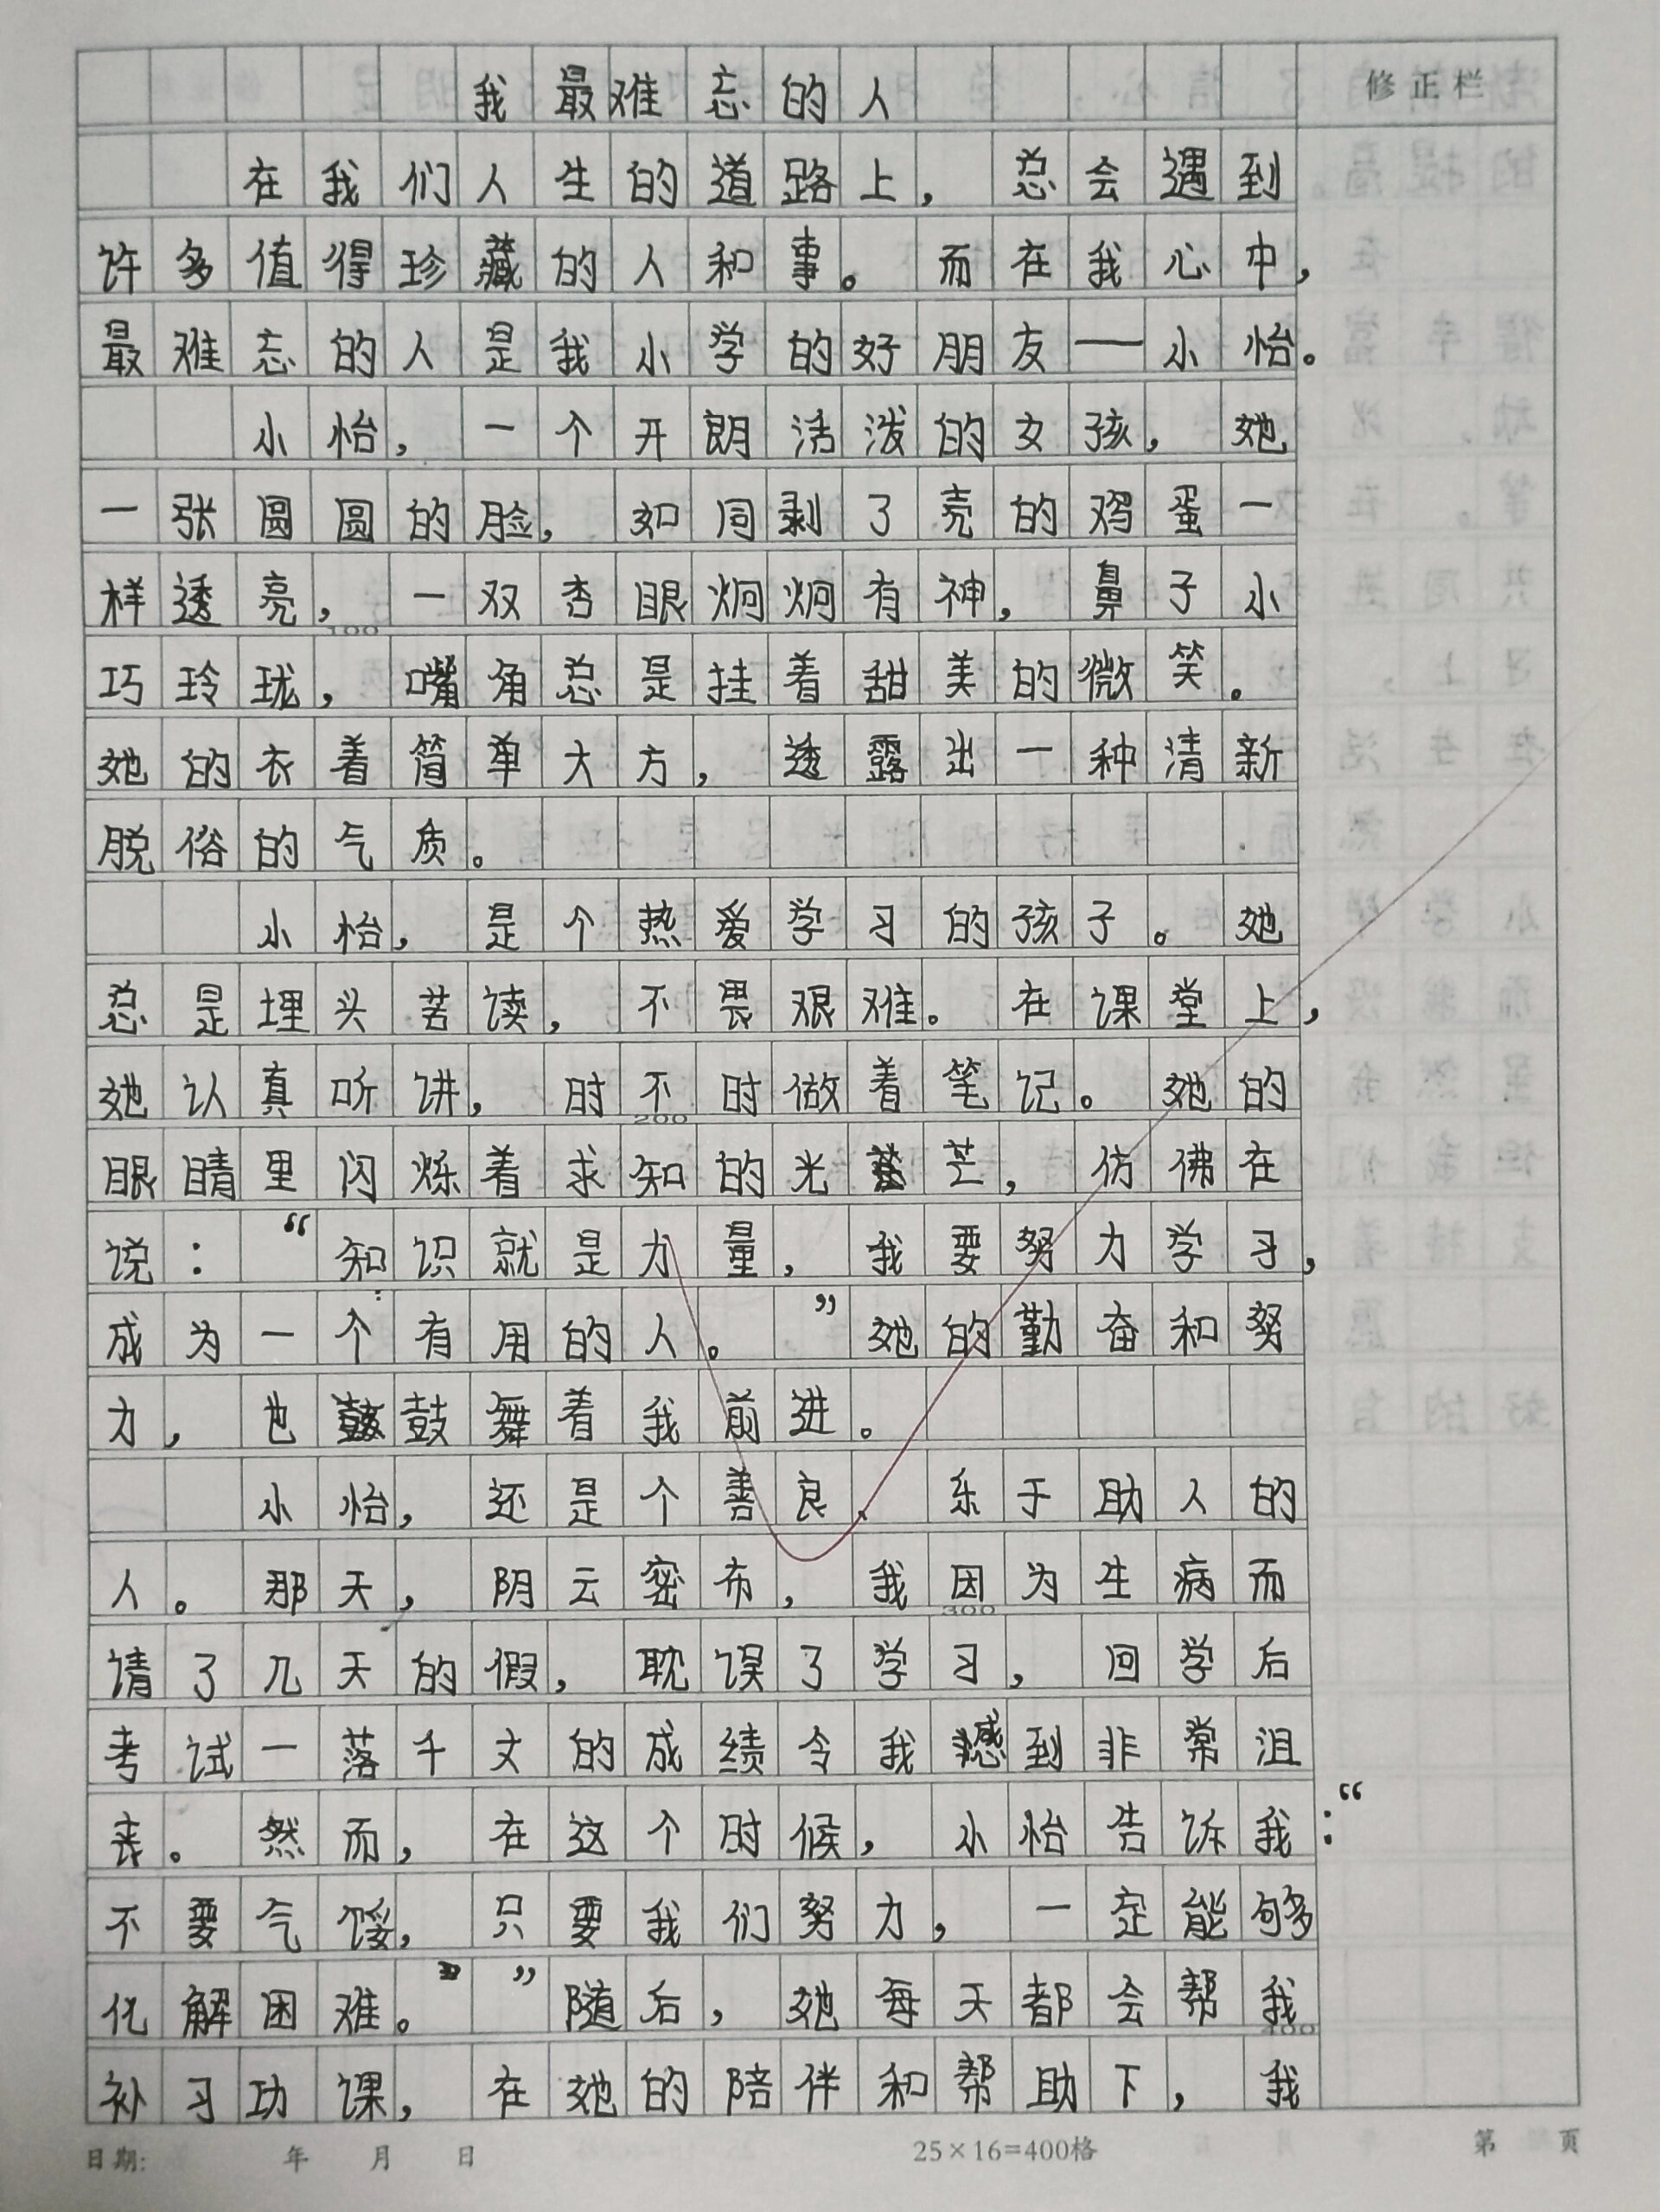 我最难忘的人
修正栏
在我们人生的道路上，总会遇到
许多值得珍藏的人和事。而在我心中，
最难忘的人是我小学的好朋友——小怡。
小怡，一个开朗活泼的女孩，她
一张圆圆的脸，如同剥了壳的鸡蛋一
样透亮，一双杏眼炯炯有神，鼻子小
100
巧玲珑，嘴角总是挂着甜美的微笑。
她的衣着简单大方，透露出一种清新
脱俗的气质。
小怡，是个热爱学习的孩子。她
总是埋头苦读，不畏艰难。在课堂上，
她认真听讲，时不时做着笔记。她的
200
眼睛里闪烁着求知的光芒，仿佛在
说：“知识就是力量，我要努力学习，
成为一个有用的人。”她的勤奋和努
力，也鼓舞着我前进。
小怡，还是个善良、乐于助人的
人。那天，阴云密布，我因为生病而
300
请了几天的假，耽误了学习，回学后
考试一落千丈的成绩令我感到非常沮
丧。然而，在这个时候，小怡告诉我：“
不要气馁，只要我们努力，一定能够
化解困难。”随后，她每天都会帮我
400
补习功课，在她的陪伴和帮助下，我
日期: 年 月 日
25×16=400格
第 页